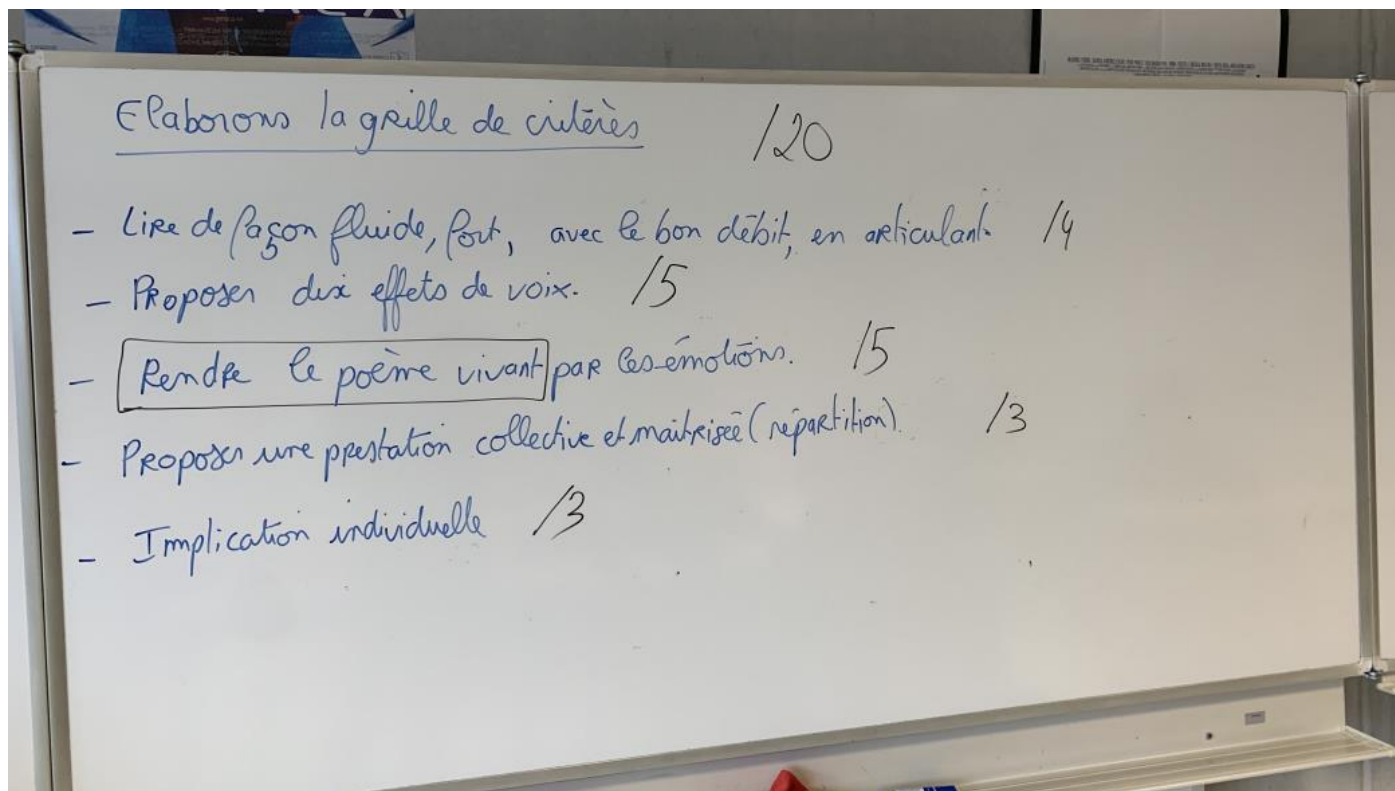 Elaborons la grille de critères /20
- Lire de façon fluide, fort, avec le bon débit, en articulant. /4
- Proposer dix effets de voix. /5
- Rendre le poème vivant par les émotions. /5
- Proposer une prestation collective et maitrisée (répartition). /3
- Implication individuelle /3